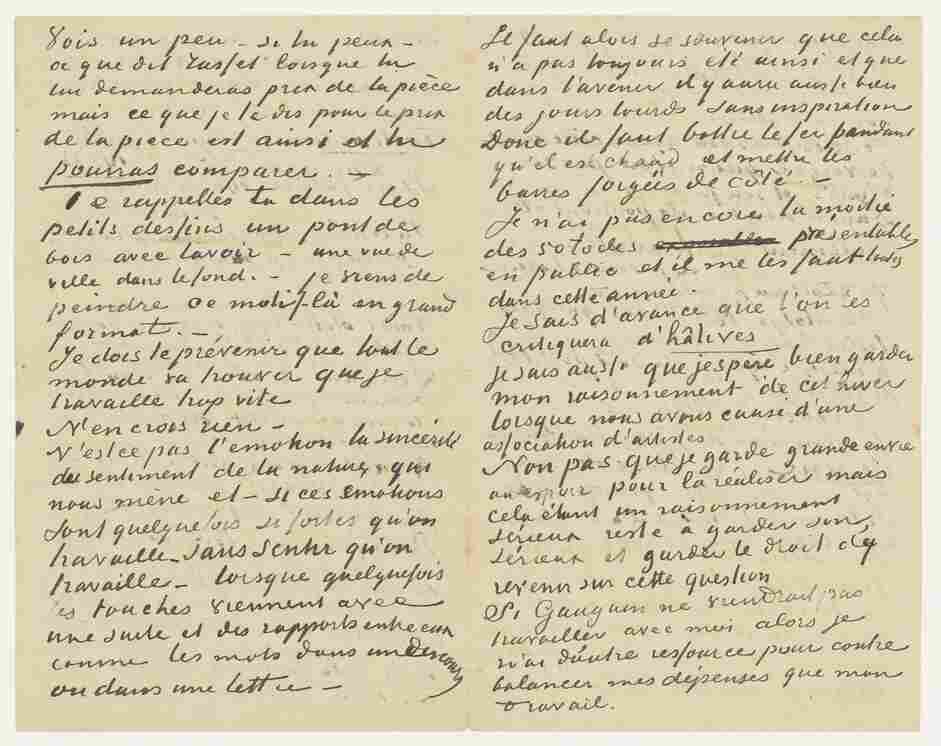 Vois un peu – si tu peux –
ce que dit Tasset lorsque tu
lui demanderas prix de la pièce
mais ce que je te dis pour le prix
de la pièce est ainsi et tu
pourras comparer. –
Te rappelles tu dans les
petits dessins un pont de
bois avec lavoir – une vue de
ville dans le fond. – je viens de
peindre ce motif-là en grand
format. –
Je dois te prévenir que tout le
monde va trouver que je
travaille trop vite
N'en crois rien –
N'est ce pas l'emotion la sincérité
du sentiment de la nature qui
nous mène et – si ces emotions
sont quelquefois si fortes qu'on
travaille – sans sentir qu'on
travaille – lorsque quelquefois
les touches viennent avec
une suite et des rapports entre eux
comme les mots dans un discours
ou dans une lettre –
Il faut alors se souvenir que cela
n'a pas toujours été ainsi et que
dans l'avenir il y aura aussi bien
des jours lourds sans inspiration
Donc il faut battre le fer pendant
qu'il est chaud et mettre les
barres forgées de côté –
Je n'ai pas encore la moitié
des 50 toiles présentables
en public et il me les faut toutes
dans cette année.
Je sais d'avance que l'on les
critiquera d'hâtives
je sais aussi que j'espère bien garder
mon raisonnement de cet hiver
lorsque nous avons causé d'une
association d'artistes
Non pas que je garde grande envie
ou espoir pour la réaliser mais
cela étant un raisonnement
sérieux reste à garder son
sérieux et garder le droit de
revenir sur cette question
Si Gauguin ne viendrait pas
travailler avec moi alors je
n'ai d'autre ressource pour contre
balancer mes dépenses que mon
travail.